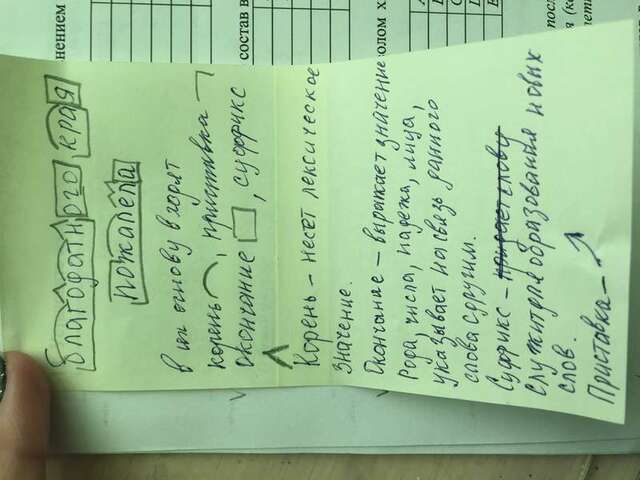 благодатного края
пожалела
в их основу входят
корень , приставка
окончание , суффикс
Корень – несет лексическое
значение.
Окончание – выражает значение
рода, числа, падежа, лица,
указывает на связь данного
слова с другим.
Суффикс – придает слову
служит для образования новых
слов.
Приставка –
нением
состав в
волом х